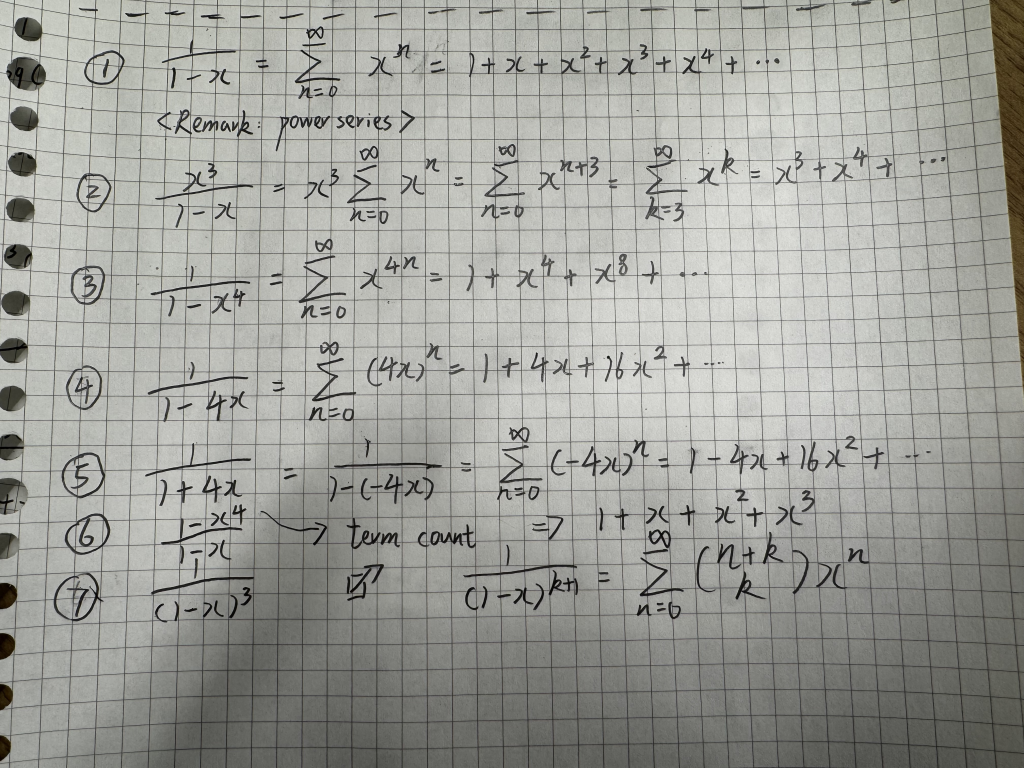 ① 1/(1-x) = ∑_{n=0}^{∞} x^n = 1 + x + x^2 + x^3 + x^4 + ⋯
<Remark: power series>
② x^3/(1-x) = x^3 ∑_{n=0}^{∞} x^n = ∑_{n=0}^{∞} x^{n+3} = ∑_{k=3}^{∞} x^k = x^3 + x^4 + ⋯
③ 1/(1-x^4) = ∑_{n=0}^{∞} x^{4n} = 1 + x^4 + x^8 + ⋯
④ 1/(1-4x) = ∑_{n=0}^{∞} (4x)^n = 1 + 4x + 16x^2 + ⋯
⑤ 1/(1+4x) = 1/(1-(-4x)) = ∑_{n=0}^{∞} (-4x)^n = 1 - 4x + 16x^2 + ⋯
⑥ (1-x^4)/(1-x) → term count ⇒ 1 + x + x^2 + x^3
⑦ 1/(1-x)^3 1/(1-x)^{k+1} = ∑_{n=0}^{∞} \binom{n+k}{k} x^n